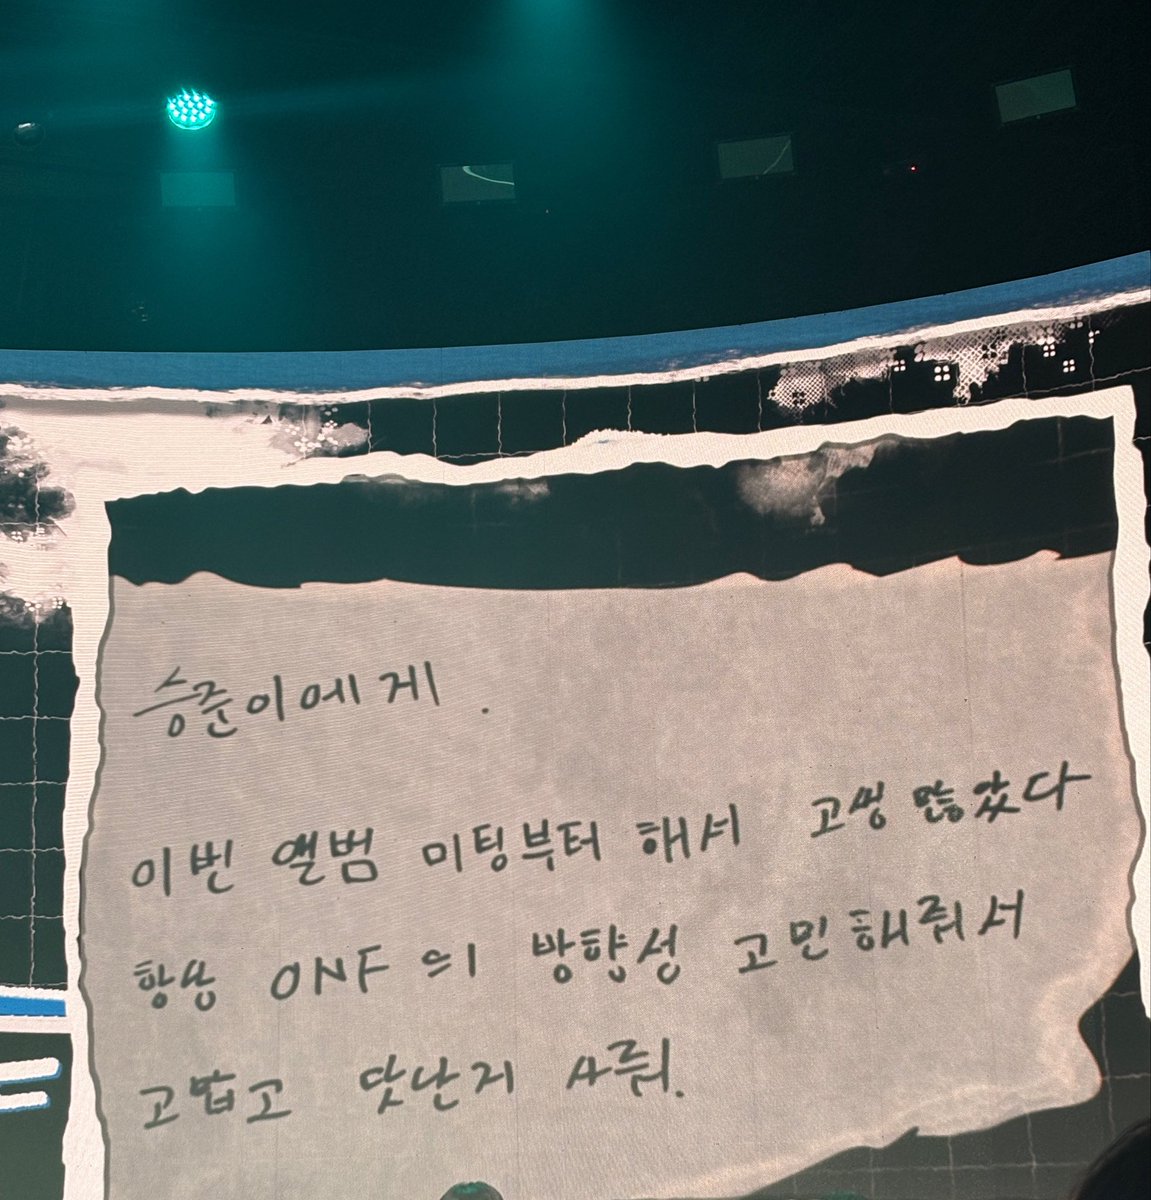 승준이에게.
이번 앨범 미팅부터 해서 고생 많았다
항상 ONF의 방향성 고민해줘서
고맙고 맛난거 사줘.